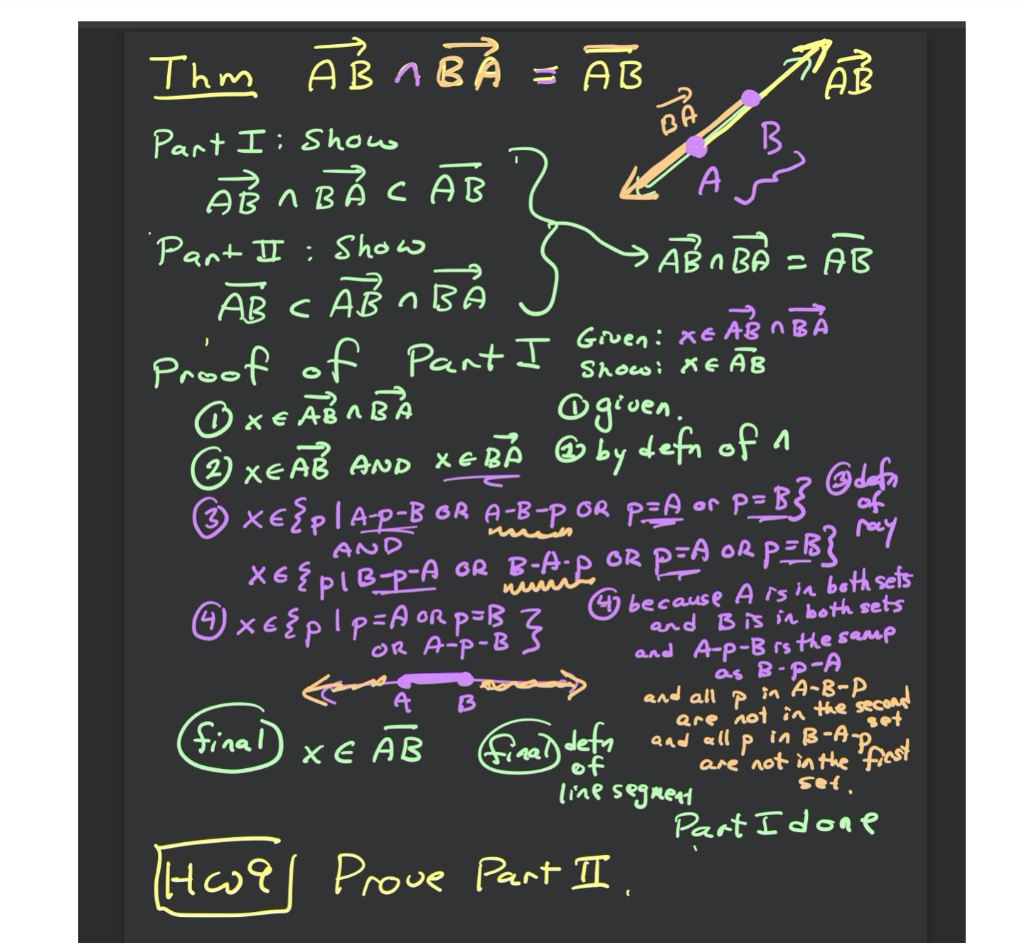 Thm →AB ∩ →BA = A̅B̅
→BA →AB
A B
Part I : Show
→AB ∩ →BA ⊂ A̅B̅
Part II : Show
A̅B̅ ⊂ →AB ∩ →BA
→AB ∩ →BA = A̅B̅
Proof of Part I
Given: x ∈ →AB ∩ →BA
Show: x ∈ A̅B̅
① x ∈ →AB ∩ →BA ① given.
② x ∈ →AB AND x ∈ →BA ② by defn of ∩
③ x ∈ {p | A-p-B OR A-B-p OR p=A or p=B} ③ defn of ray
AND
x ∈ {p | B-p-A OR B-A-p OR p=A OR p=B}
④ x ∈ {p | p=A OR p=B
OR A-p-B}
④ because A is in both sets
and B is in both sets
and A-p-B is the same
as B-p-A
and all p in A-B-P
are not in the second
set
and all p in B-A-p
are not in the first
set.
A B
final x ∈ A̅B̅ final defn
of
line segment
Part I done
HW9 Prove Part II.